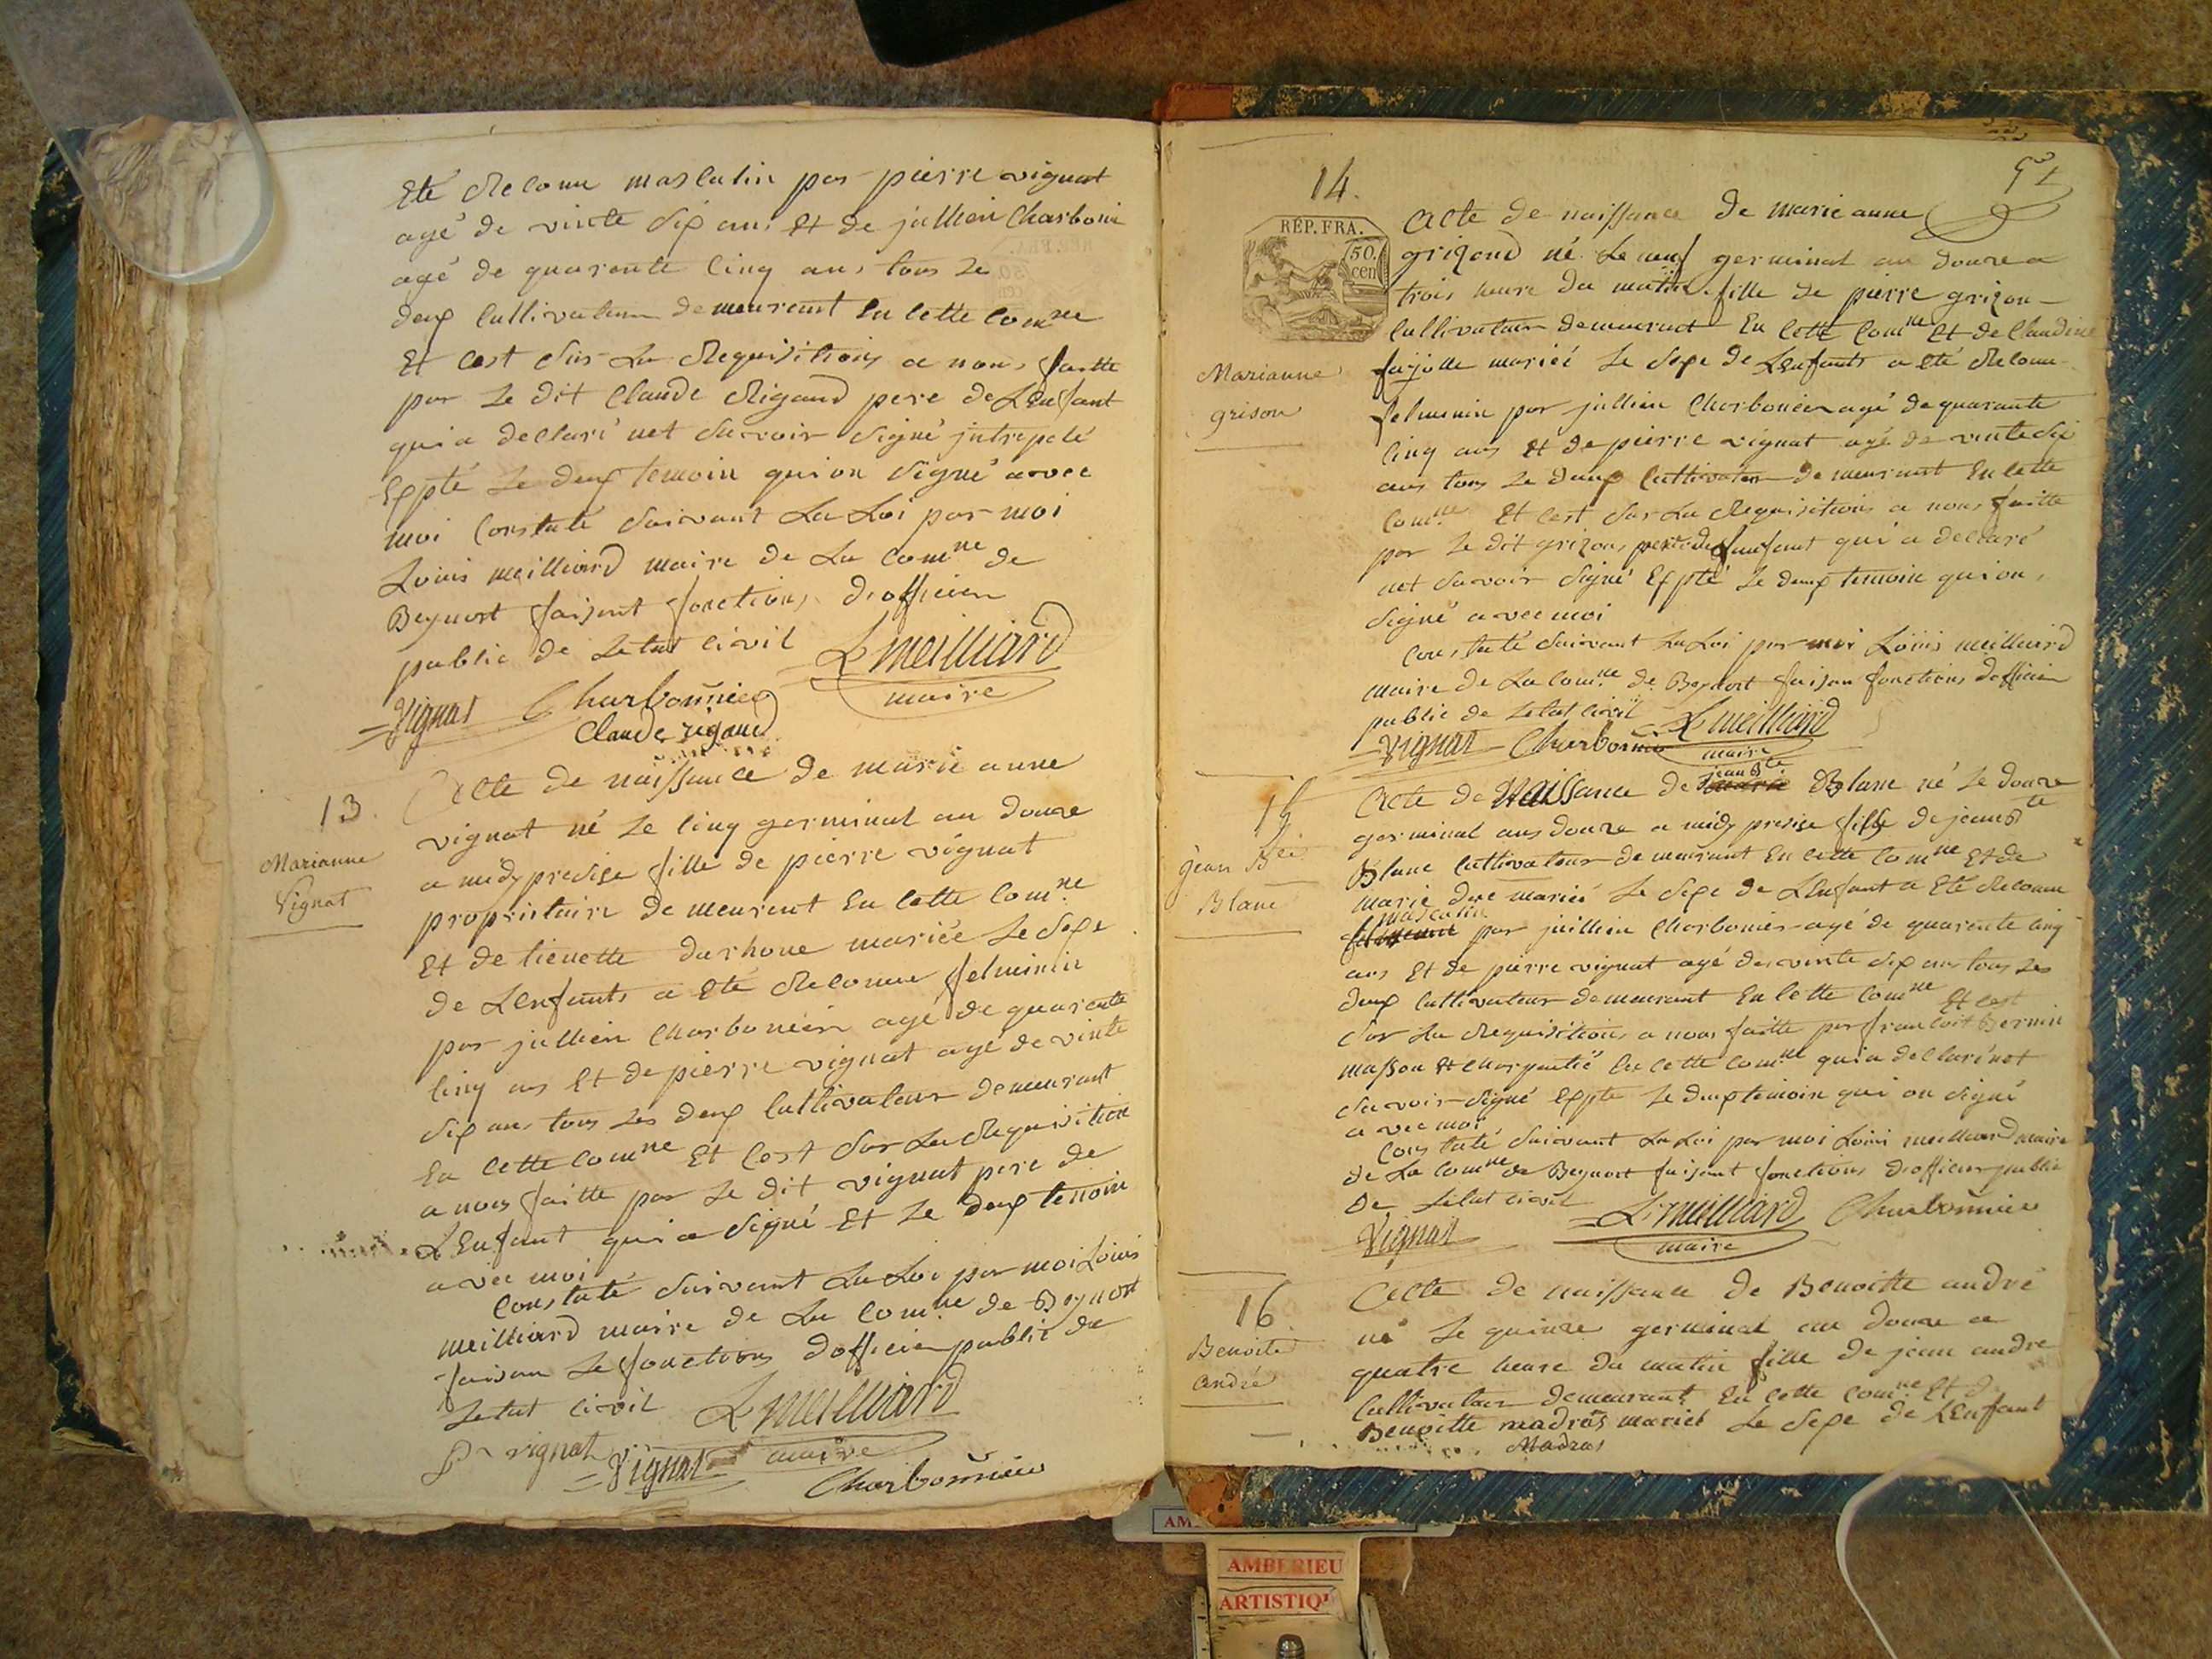 Eté Reconu masculin par pierre vignat
agé de vinte six ans Et de jullien Charbonie
agé de quarente cinq ans tous Le
deux Cultivateur demeurent En cette Comne
Et cest sur La Requisitions a nous faitte
par Le dit Claude Rigaud pere de LEnfant
qui a declaré net savoir signé jntrepelé
Expté Le deux temoin qui on signé avec
moi Constaté suivant La Loi par moi
Louis meilliard maire de La Comne de
Beynost faisent fonctions d'officier
public de Letat civil L meilliard
maire
Vignat Charbonnier
Claude rigaud
13
Marianne
Vignat
Acte de naissance de marie anne
vignat né Le cinq germinal an douze
a midy precise fille de pierre vignat
proprietaire demeurent En cette Comne
Et de lienette durhone mariée Le sexe
de LEnfants a Eté Reconue felminin
par jullien Charbonnier agé de quarente
cinq ans Et de pierre vignat agé de vinte
six ans tous Les deux Cultivateur demeurant
En cette Comne Et Cest sur La Requisition
a nous faitte par Le dit vignat pere de
LEnfant qui a signé Et Le deux temoin
avec moi
Constaté suivant La Loi par moi Louis
meilliard maire de La Comne de Beynost
faisan Le fonctions d'officier public de
Letat civil L meilliard
maire
Pre vignat Vignat
Charbonnier
51
14.
RÉP. FRA.
50.
cen
Marianne
grison
Acte de naissance de marie anne
grizond né Le neuf germinal an douze a
trois heure du matin fille de pierre grizon
Cultivateur demeurant En Cette Comne Et de Claudine
fajolle mariée Le sexe de LEnfants a Eté Reconu
felminin par jullien Charbonier agé de quarante
cinq ans Et de pierre vignat agé de vinte six
ans tous Le deux Cultivateur demeurant En Cette
Comne Et Cest sur La Requisitions a nous faitte
par Le dit grizon pere de Lenfant qui a declaré
net savoir signé Expté Le deux temoin qui on
signé avec moi
Constaté suivant La Loi par moi Louis meilliard
maire de La Comne de Beynost faisan fonctions dofficier
public de Letat civil L meilliard
Vignat Charbonnier maire
15
jean Bte
Blanc
jean Bte
Acte de Naissance de marie Blanc né Le douze
germinal ans douze a midy precise fils de jean Bte
Blanc Cultivateur demeurant En cette Comne Et de
marie duc mariée Le sexe de LEnfant a Eté Reconu
masculin
par juillien Charbonier agé de quarente cinq
ans Et de pierre vignat agé de vinte six ans tous Les
deux Cultivateur demeurant En Cette Comne Et Cest
sur La Requisitions a nous faitte par francoit Bernin
masson Et charpentié En cette Comne qui a declaré net
savoir signé Expte Le deux temoin qui on signé
avec moi
Constaté suivant La Loi par moi Louis meilliard maire
de La Comne de Beynost faisent fonctions d'officier public
De Letat civil L meilliard Charbonnier
Vignat maire
16
Benoite
André
Acte de naissance de Benoitte andré
né Le quinze germinal an douze a
quatre heure du matin fille de jean andre
Cultivateur demeurant En cette Comne Et de
Benoitte madras mariée Le sexe de LEnfant
Madras
AMBERIEU
ARTISTIQ